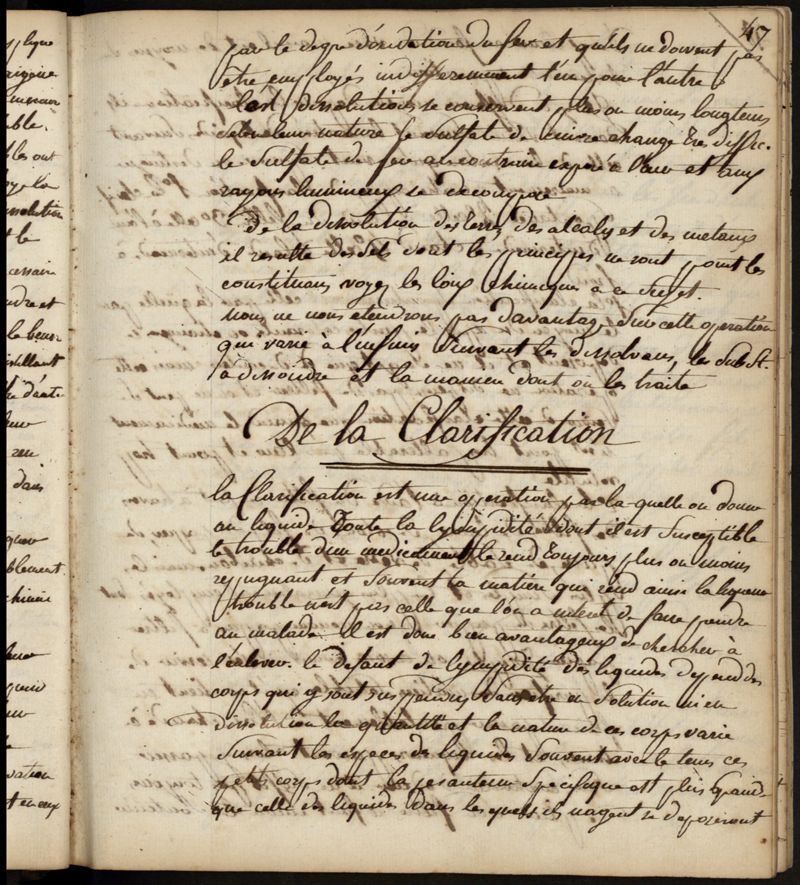 47
par le degré d'oxidation du fer et qu'ils ne doivent pas
être employés indifferemment l'un pour l'autre
les dissolutions se conservent plus ou moins longtems
selon leur nature le sulfate de cuivre change très diffic.
le sulfate de fer au contraire exposé à l'air et aux
rayons lumineux se decompose
De la dissolution des terres, des alcalis et des metaux
il resulte des sels dont les principes ne sont point les
constituans voyez les loix chimiques a ce sujet.
nous ne nous etendrons pas davantage sur cette operation
qui varie à l'infini suivant les dissolvans, les subst.
a dissoudre et la maniere dont on les traite
De la Clarification
la Clarification est une operation par la quelle on donne
au liquide toute la lympidité dont il est susceptible
le trouble d'un medicament le rend toujours plus ou moins
repugnant et souvent la matiere qui rend ainsi la liqueur
trouble n'est pas celle que l'on a intent de faire prendre
au malade. il est donc bien avantageux de chercher à
l'enlever. le defaut de lympidité des liquides depend des
corps qui y sont suspendus sans etre en solution ni en
dissolution la quantité et la nature de ces corps varie
suivant les especes de liquides souvent avec le tems ces
petits corps dont la pesanteur specifique est plus grande
que celle des liquides dans les quels ils nagent se deposeront